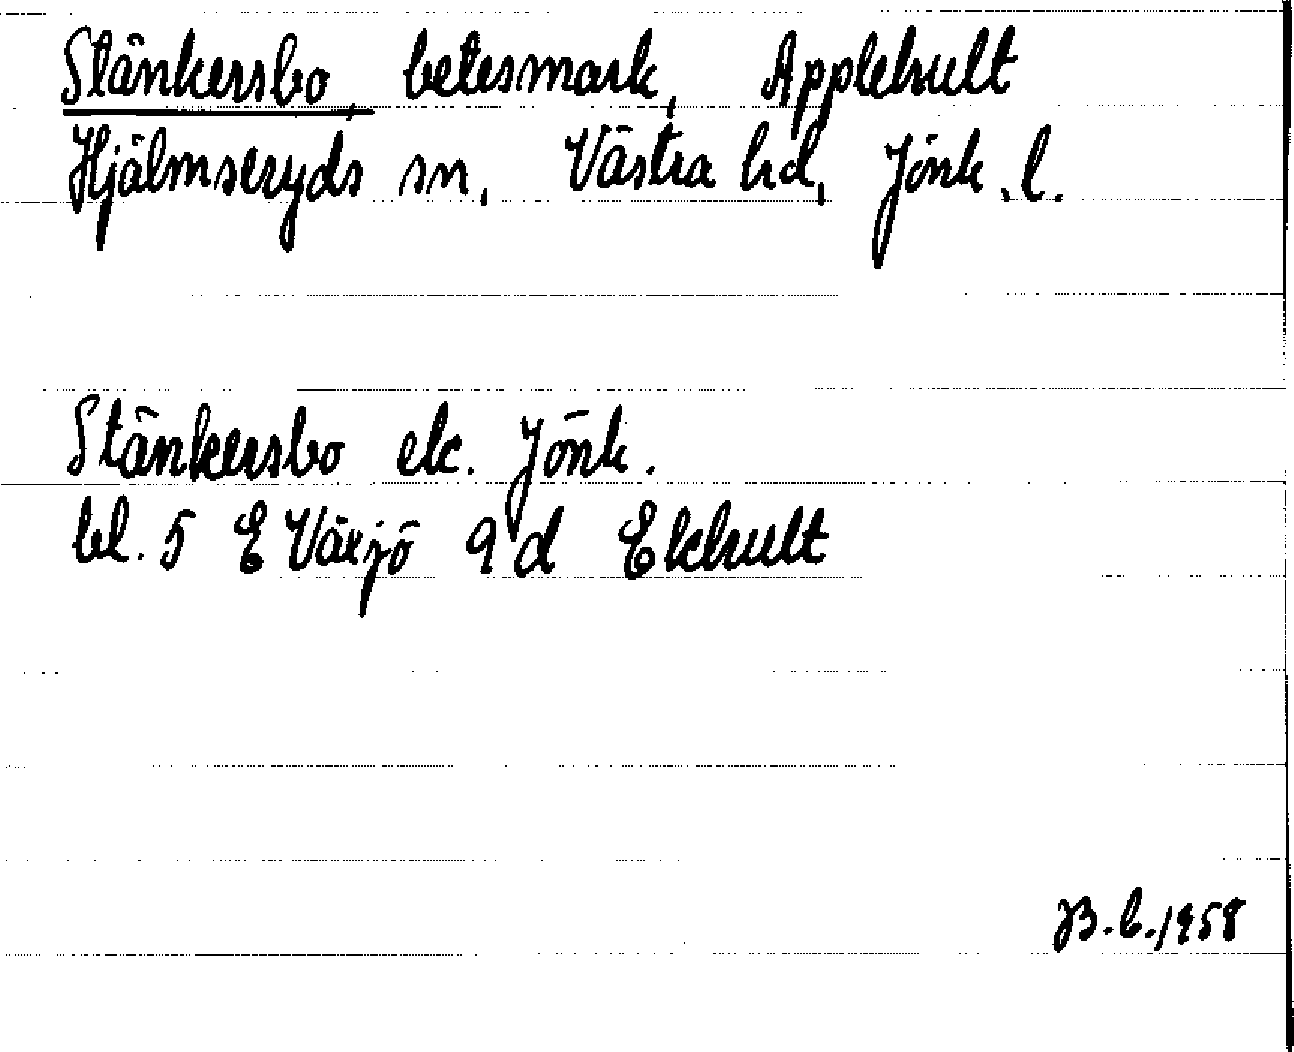 Stänkersbo, betesmark, Applehult
Hjälmseryds sn, Västra hd, Jönk. l.
Stänkersbo ek. Jönk.
bl. 5 E Växjö 9 d Ekhult
B.L. 1958